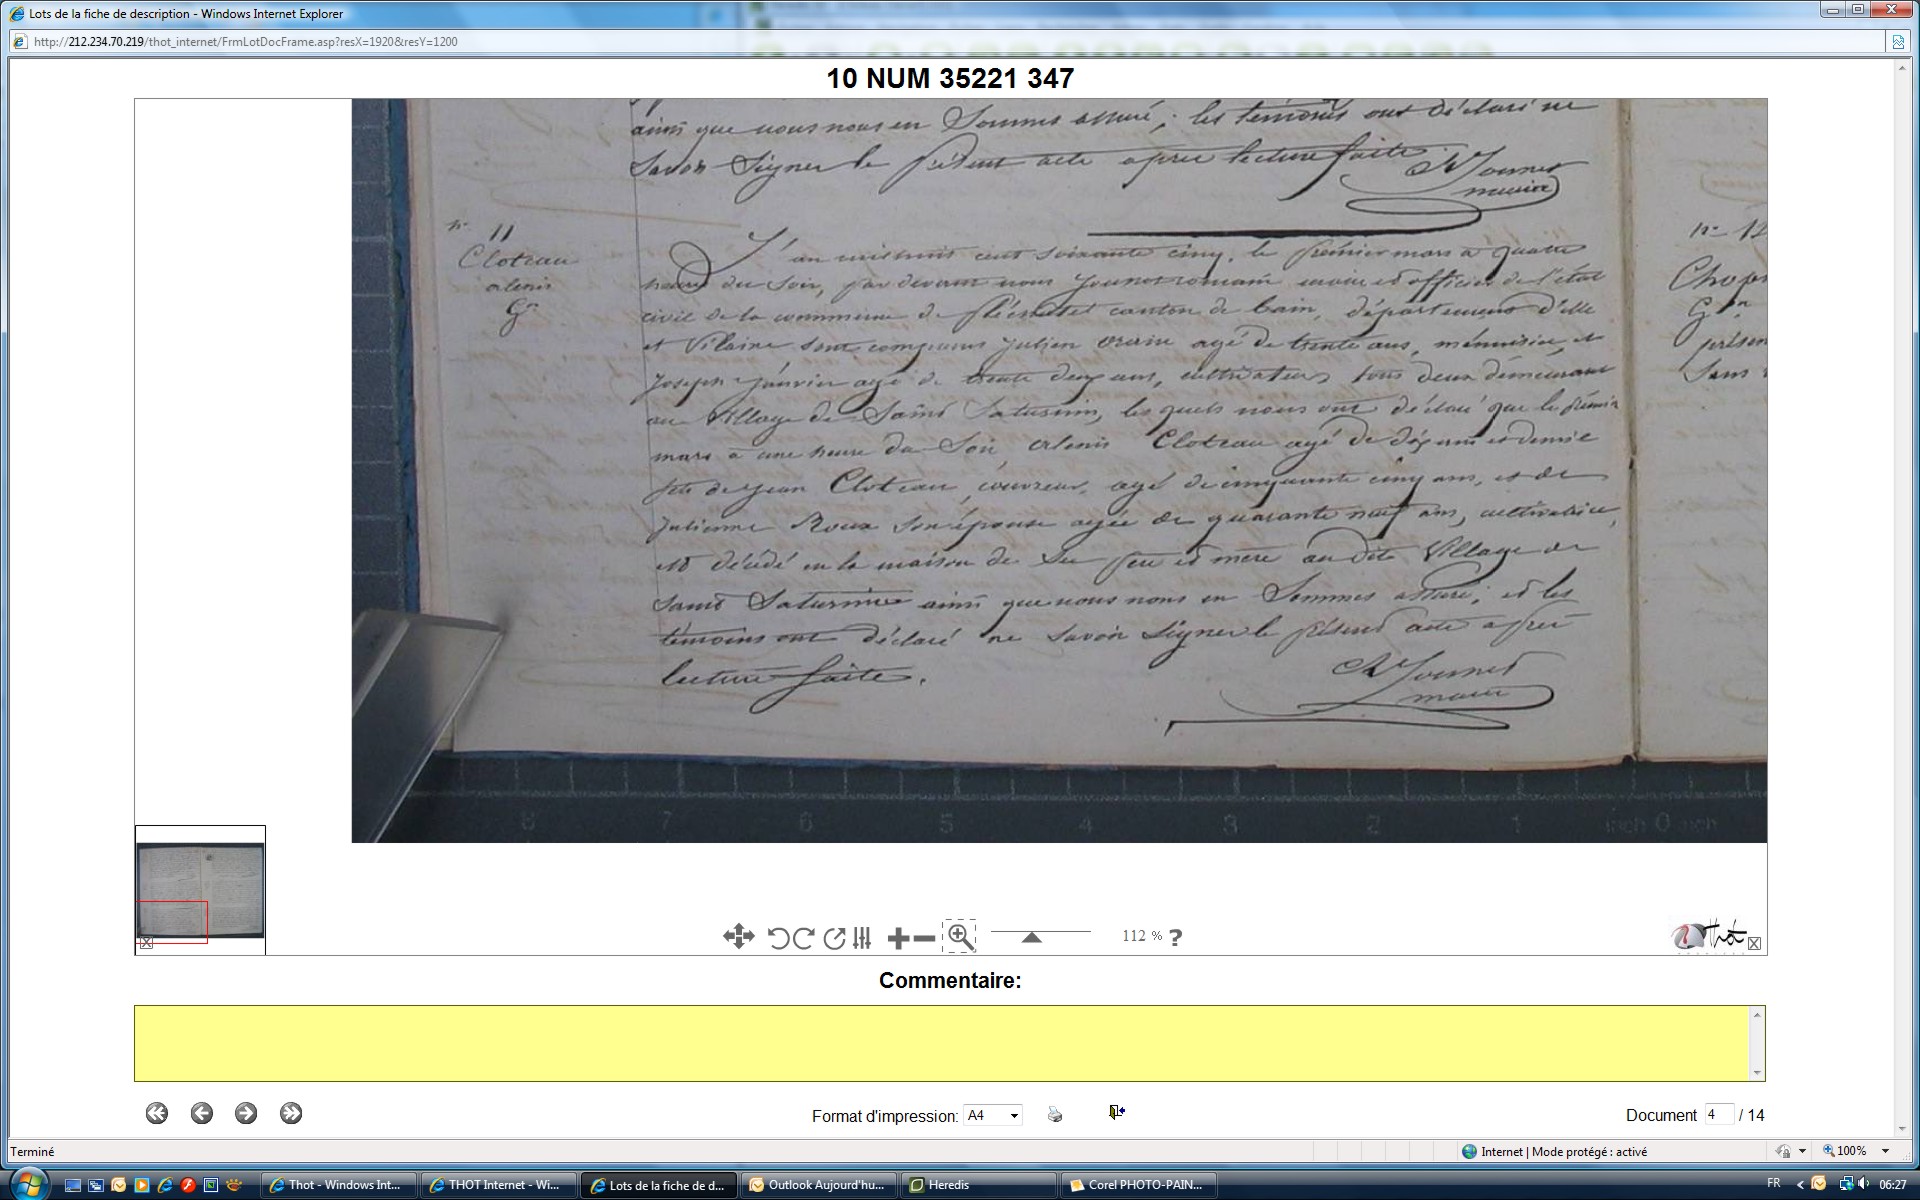 Lots de la fiche de description - Windows Internet Explorer
http://212.234.70.219/thot_internet/FrmLotDocFrame.asp?resX=1920&resY=1200
10 NUM 35221 347
ainsi que nous nous en Sommes assuré ; les témoins ont déclaré ne
Savoir Signer le présent acte apres lecture faite.
maire
n° 11
Cloteau
G.on
L'an mil huit cent soixante cinq, le prémier mars à quatre
heures du Soir, par devant nous maire et officier de l'état
civil de la commune de canton de bain, département d'ille
et Vilaine sont comparus Julien orain agé de trente ans, ménuisier, et
Joseph Janvier agé de trente deux ans, cultivateur tous deux démeurant
au Village de Saint Saturnin, les quels nous ont déclaré que le prémier
mars à une heure du Soir Cloteau agé de ans et demie
fils de Jean Cloteau, couvreur, agé de cinquante cinq ans, et de
Julienne Roux Son épouse agée de quarante neuf ans, cultivatrice,
est décédé en la maison de Ses et mère au dit Village de
Saint Saturnin ainsi que nous nous en Sommes assuré ; et les
témoins ont déclaré ne Savoir Signer le présent acte après
lecture faite.
maire
n° 12
Chop
G.on
présen
Sans
8 7 6 5 4 3 2 1 inch 0 inch
112 % ?
Thot
Commentaire:
Format d'impression: A4
Document 4 / 14
Terminé
Internet | Mode protégé : activé
100%
Thot - Windows Int...
THOT Internet - Wi...
Lots de la fiche de d...
Outlook Aujourd'hu...
Heredis
Corel PHOTO-PAIN...
FR
06:27